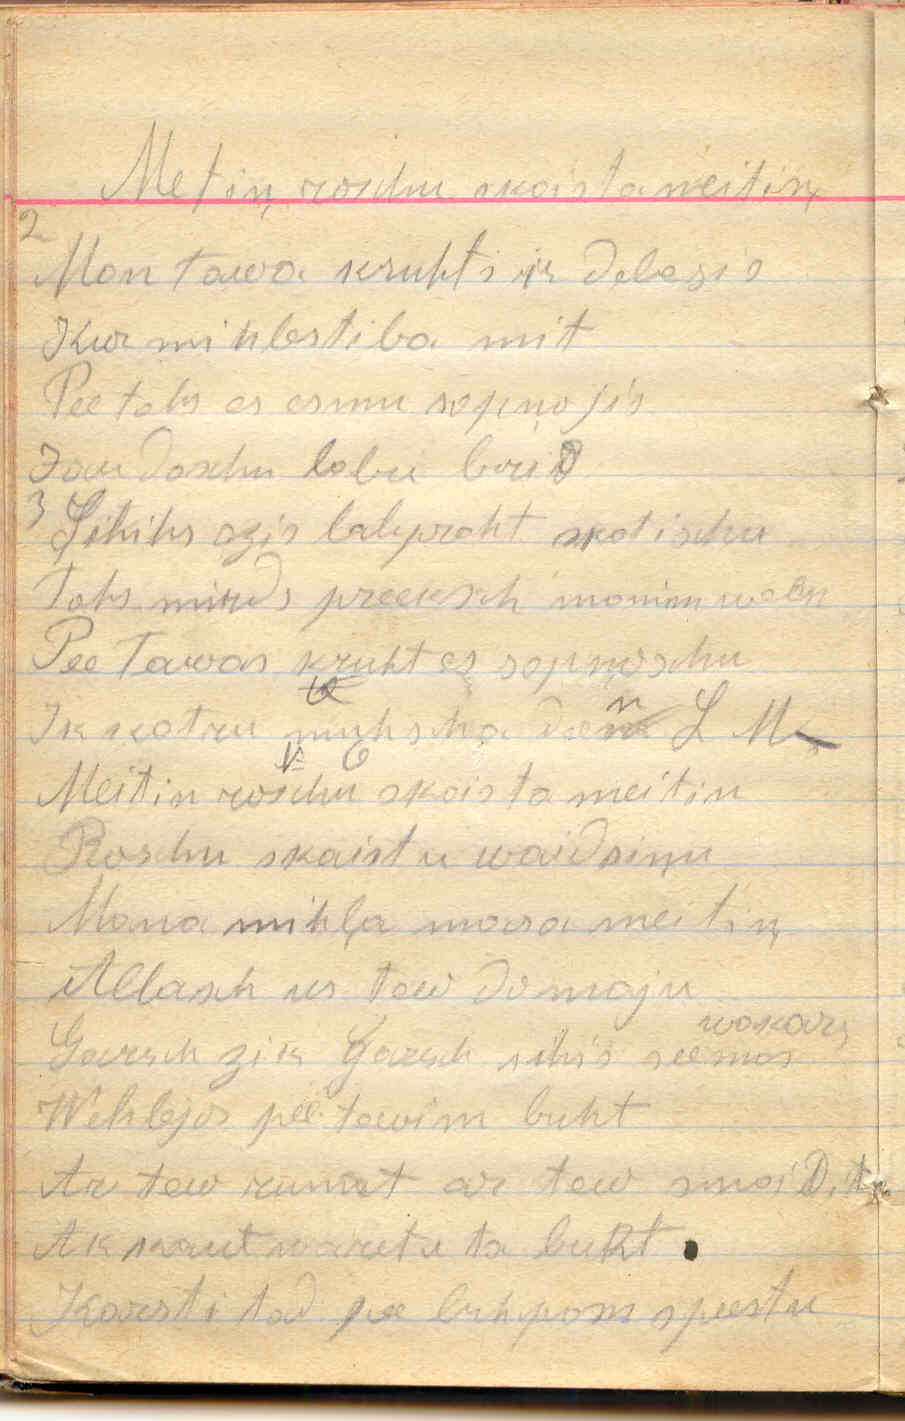 Metiņ roschu skaista meitiņ
2
Man tawa kruhts ir debesis
Kur mihlestiba mit
Pee tahs es esmu sapņojis
Jau daschu labu brid
3 Sihihs azis labpraht skatischu
Tahs mirds preeksch manim ween
Pee Tawas kruhtes sapņoschu
Ik katru deen L M
Meitin roschu skaista meitin
Roschu skaistu waidsiņu
Mana mihļa masa meitiņ
Allasch us tew domaju
wakars
Garsch zik garsch sihis seemas
Wehlejos pee tawim buht
Ar tew runat ar tew smaidit
Ak kaut waretu ta buht
Karsti tad pee luhpam speestu